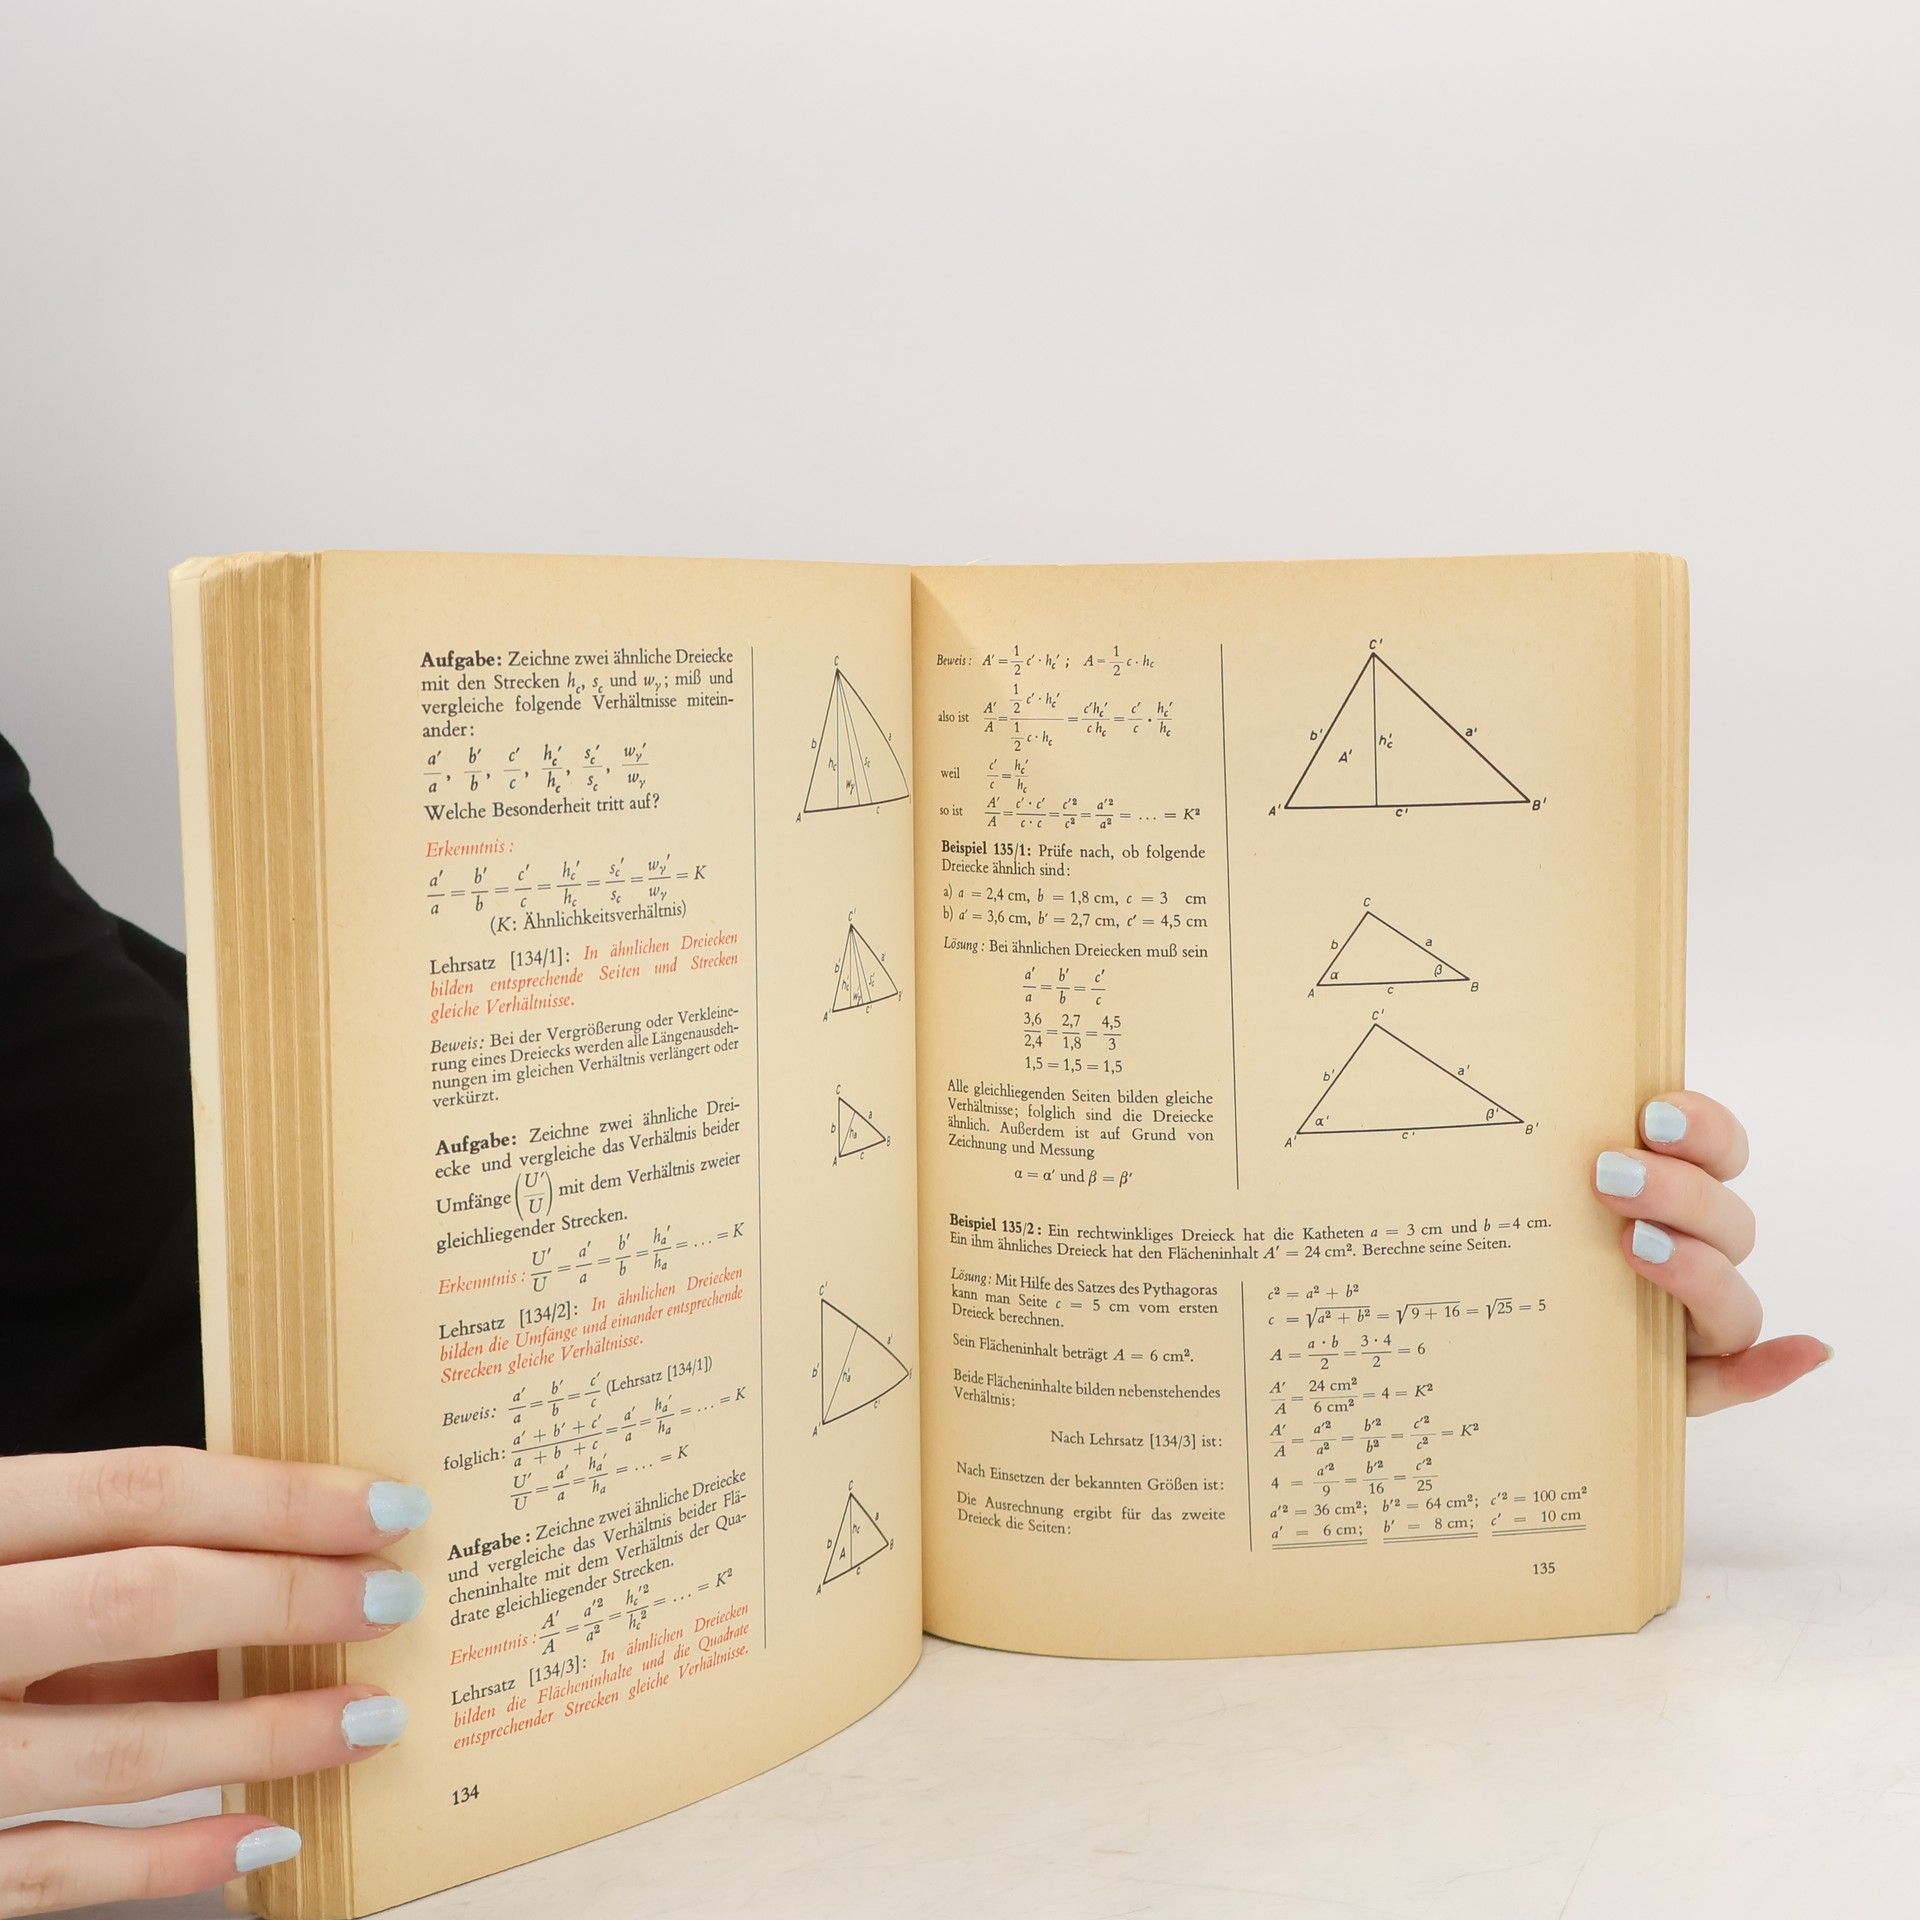 Aufgabe: Zeichne zwei ähnliche Dreiecke
mit den Strecken h_c, s_c und w_γ; miß und
vergleiche folgende Verhältnisse mitein-
ander:
a'/a, b'/b, c'/c, h_c'/h_c, s_c'/s_c, w_γ'/w_γ
Welche Besonderheit tritt auf?
Erkenntnis:
a'/a = b'/b = c'/c = h_c'/h_c = s_c'/s_c = w_γ'/w_γ = K
(K: Ähnlichkeitsverhältnis)
Lehrsatz [134/1]: In ähnlichen Dreiecken
bilden entsprechende Seiten und Strecken
gleiche Verhältnisse.
Beweis: Bei der Vergrößerung oder Verkleine-
rung eines Dreiecks werden alle Längenausdeh-
nungen im gleichen Verhältnis verlängert oder
verkürzt.
Aufgabe: Zeichne zwei ähnliche Drei-
ecke und vergleiche das Verhältnis beider
Umfänge (U'/U) mit dem Verhältnis zweier
gleichliegender Strecken.
Erkenntnis: U'/U = a'/a = b'/b = h_a'/h_a = ... = K
Lehrsatz [134/2]: In ähnlichen Dreiecken
bilden die Umfänge und einander entsprechende
Strecken gleiche Verhältnisse.
Beweis: a'/a = b'/b = c'/c (Lehrsatz [134/1])
folglich: a' + b' + c' / a + b + c = a'/a = h_a'/h_a = ... = K
U'/U = a'/a = h_a'/h_a = ... = K
Aufgabe: Zeichne zwei ähnliche Dreiecke
und vergleiche das Verhältnis beider Flä-
cheninhalte mit dem Verhältnis der Qua-
drate gleichliegender Strecken.
Erkenntnis: A'/A = a'²/a² = h_c'²/h_c² = ... = K²
Lehrsatz [134/3]: In ähnlichen Dreiecken
bilden die Flächeninhalte und die Quadrate
entsprechender Strecken gleiche Verhältnisse.
134
C
b a
h_c s_c
w_γ
A c
C'
b' a'
h_c' s_c'
w_γ'
A' c' B'
C
b a
h_a
A c B
C'
a'
b' h_a'
c'
A'
C
a
b h_c
A
A c B
Beweis: A' = 1/2 c' · h_c'; A = 1/2 c · h_c
also ist A'/A = 1/2 c' · h_c' / 1/2 c · h_c = c'h_c'/c h_c = c'/c · h_c'/h_c
weil c'/c = h_c'/h_c
so ist A'/A = c' · c'/c · c = c'²/c² = a'²/a² = ... = K²
C'
b' a'
A' h_c'
A' c' B'
Beispiel 135/1: Prüfe nach, ob folgende
Dreiecke ähnlich sind:
a) a = 2,4 cm, b = 1,8 cm, c = 3 cm
b) a' = 3,6 cm, b' = 2,7 cm, c' = 4,5 cm
Lösung: Bei ähnlichen Dreiecken muß sein
a'/a = b'/b = c'/c
3,6/2,4 = 2,7/1,8 = 4,5/3
1,5 = 1,5 = 1,5
Alle gleichliegenden Seiten bilden gleiche
Verhältnisse; folglich sind die Dreiecke
ähnlich. Außerdem ist auf Grund von
Zeichnung und Messung
α = α' und β = β'
C
b a
α β
A c B
C'
b' a'
α' β'
A' c' B'
Beispiel 135/2: Ein rechtwinkliges Dreieck hat die Katheten a = 3 cm und b = 4 cm.
Ein ihm ähnliches Dreieck hat den Flächeninhalt A' = 24 cm². Berechne seine Seiten.
Lösung: Mit Hilfe des Satzes des Pythagoras
kann man Seite c = 5 cm vom ersten
Dreieck berechnen.
Sein Flächeninhalt beträgt A = 6 cm².
Beide Flächeninhalte bilden nebenstehendes
Verhältnis:
Nach Lehrsatz [134/3] ist:
Nach Einsetzen der bekannten Größen ist:
Die Ausrechnung ergibt für das zweite
Dreieck die Seiten:
c² = a² + b²
c = √a² + b² = √9 + 16 = √25 = 5
A = a · b/2 = 3 · 4/2 = 6
A'/A = 24 cm²/6 cm² = 4 = K²
A'/A = a'²/a² = b'²/b² = c'²/c² = K²
4 = a'²/9 = b'²/16 = c'²/25
a'² = 36 cm²; b'² = 64 cm²; c'² = 100 cm²
a' = 6 cm; b' = 8 cm; c' = 10 cm
135